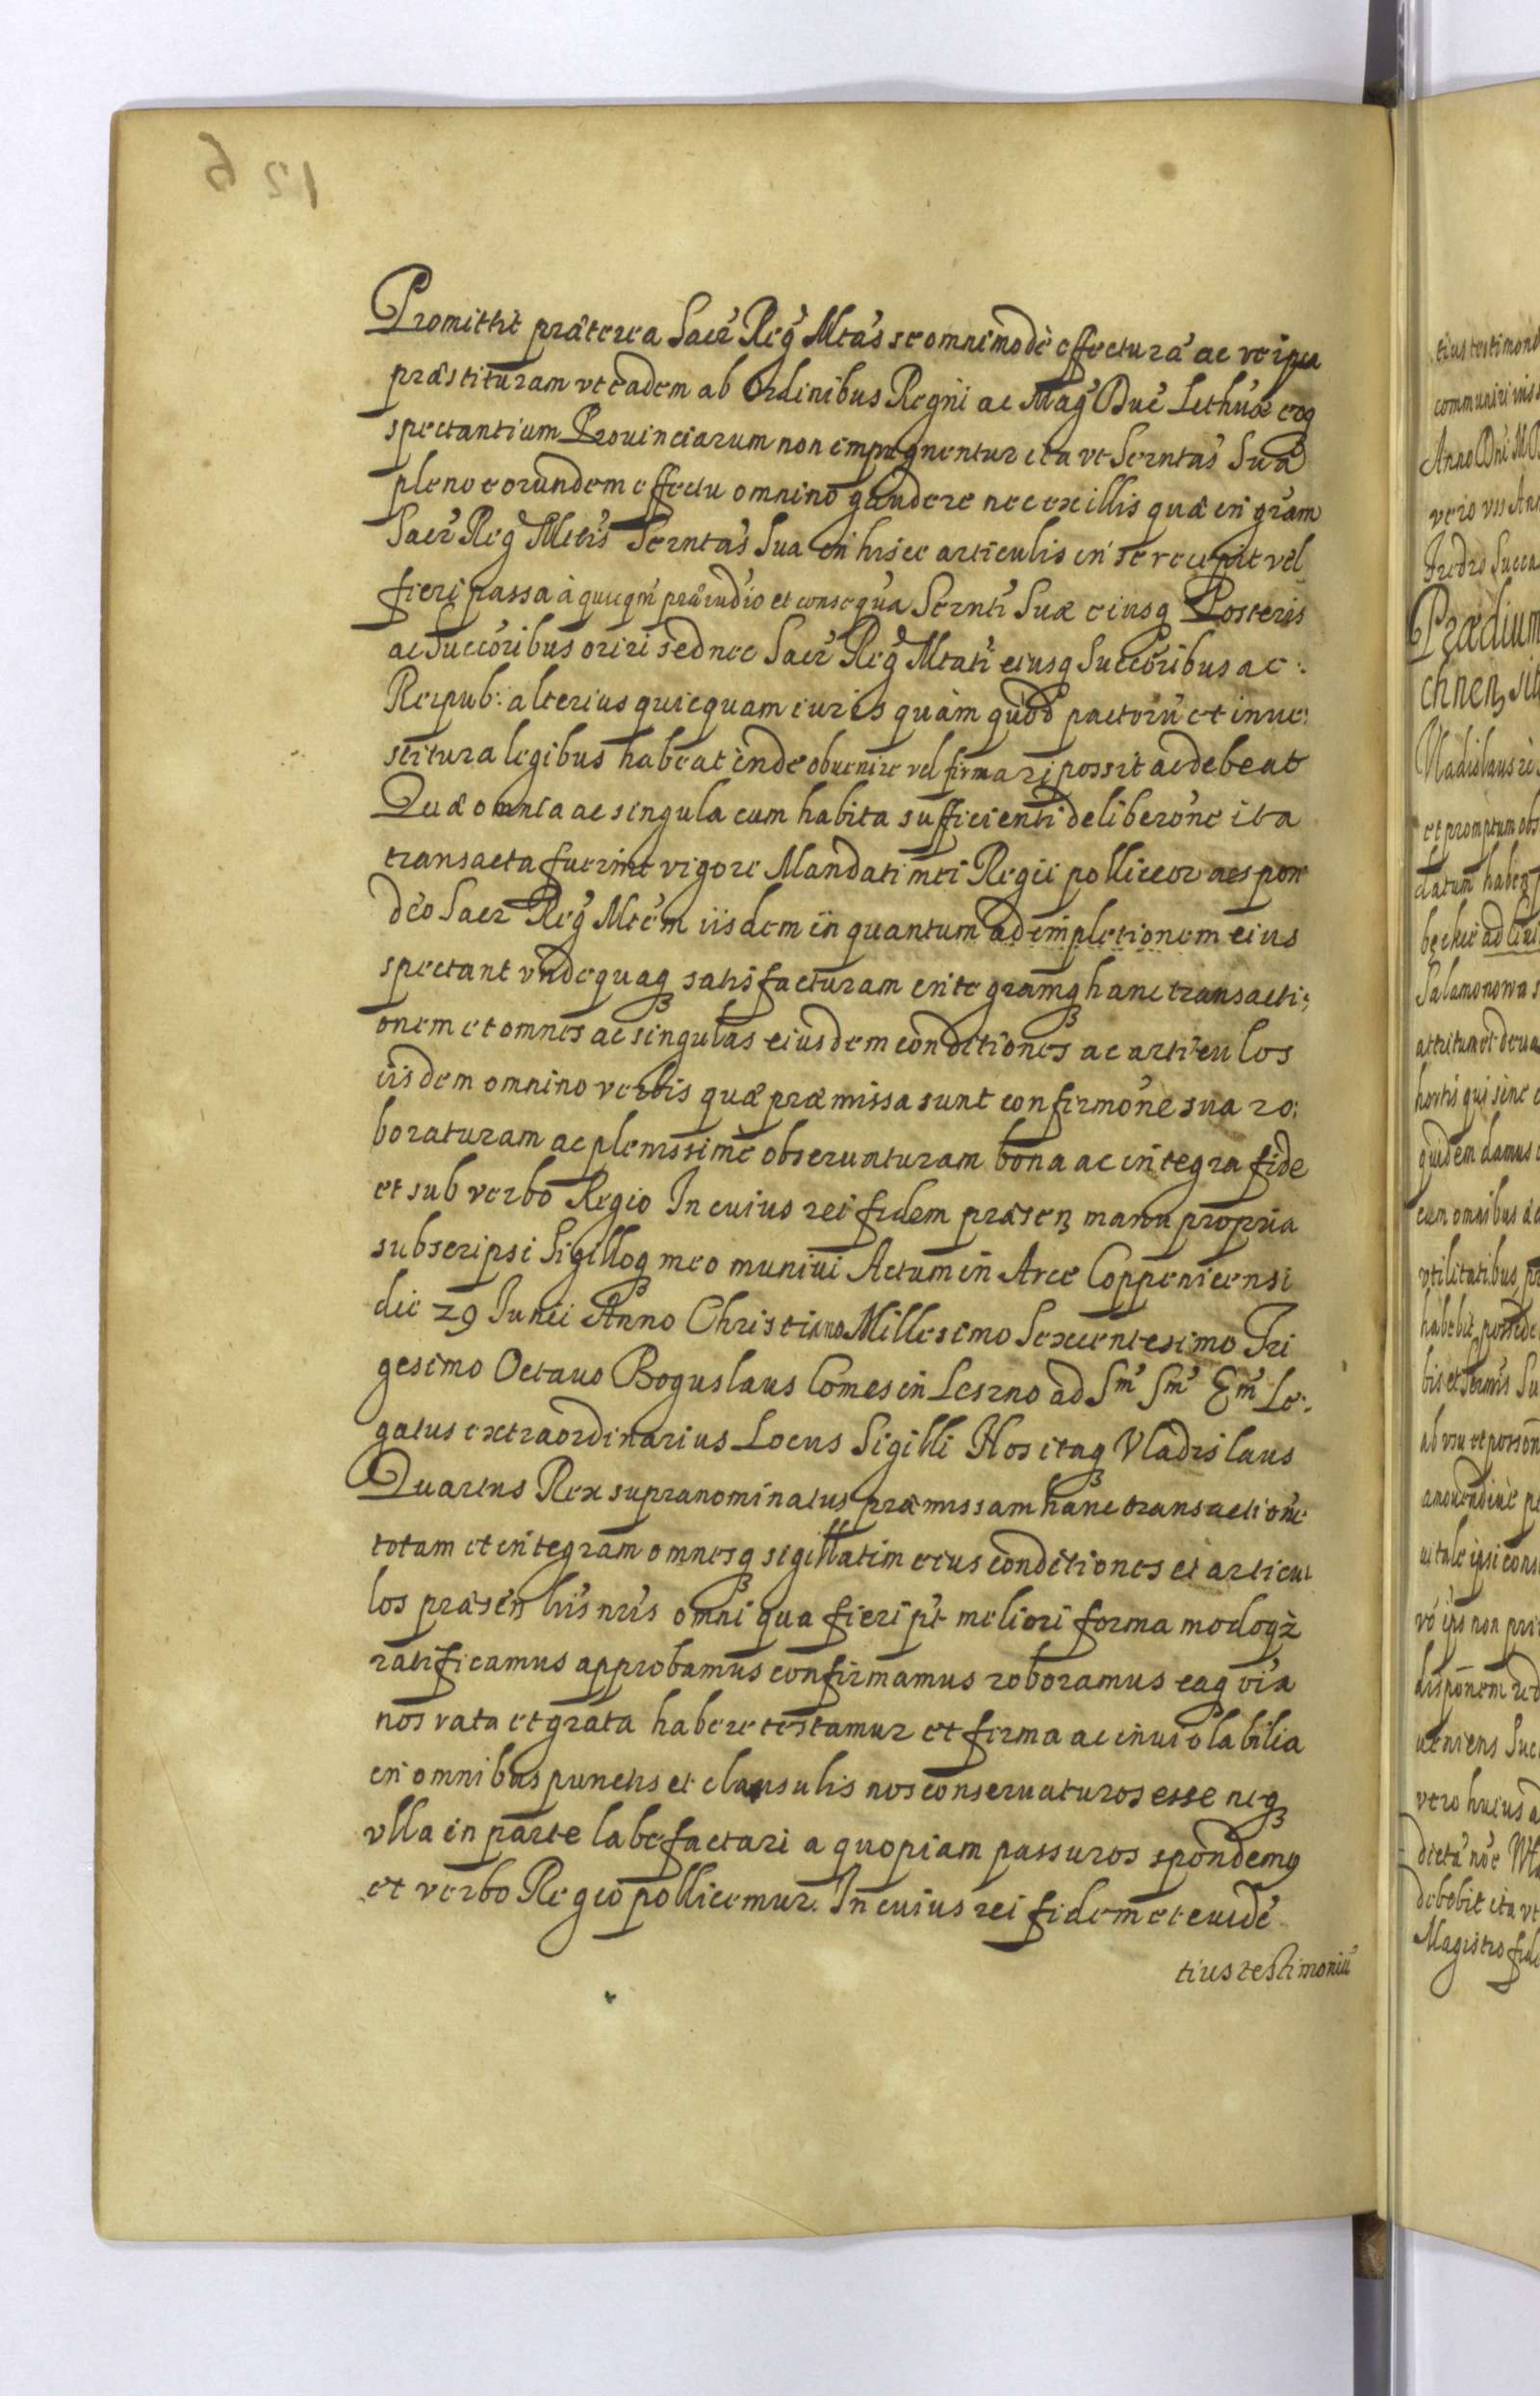 126
Promittit præterea Sacr̃ Reg̃ Mtas̃ se omnimodè effecturã ac re ipsa
præstituram vt eadem ab Ordinibus Regni ac Mag̃ Duc̃ Lithuæ eoq
spectantium Prouinciarum non impugnentur ita vt Serntas̃ Sua
pleno eorundem effectu omnino gaudere nec ex illis quæ in gr̃am
Sacr̃ Reg̃ Mttis̃ Serntas̃ Sua in hisce articulis in se recepit vel
fieri passa à quoq̃m præiudio et consequa Sernti Suæ eiusq Posteris
ac Succoribus oriri sed nec Sacr̃ Reg̃ Mtati eiusq Succoribus ac :
Reipub: alterius quicquam iuris quàm quod pactorũ et inue:
stitura legibus habeat inde obuenire vel firmari possit ac debeat
Quæ omnia ac singula cum habita sufficienti deliberõne ita
transacta fuerint vigore Mandati mei Regii polliceor ac spon
deo Sacr̃ Reg̃ Mtẽm iisdem in quantum ad impletionem eius
spectant vndequaq satisfacturam integramq hanc transacti:
onem et omnes ac singulas eiusdem conditiones ac articulos
iisdem omnino verbis quæ præmissa sunt confirmõne sua ro:
boraturam ac plenissimè obseruaturam bona ac integra fide
et sub verbo Regio In cuius rei fidem præsenz manu propria
subscripsi Sigilloq meo muniui Actum in Arce Coppenicensi
die 29 Junii Anno Christiano Millesimo Sexcentesimo Tri
gesimo Octauo Boguslaus Comes in Leszno ad Sm̃ Sm̃ Em̃ Le:
gatus extraordinarius Locus Sigilli Nos itaq Vladislaus
Quartus Rex supranominatus præmissam hanc transactionẽ
totam et integram omnesq sigillatim eius conditiones et articu
los præsen̄ lr̃is nr̃is omni qua fieri pt̃ meliori forma modoq3
ratificamus approbamus confirmamus roboramus eaq oĩa
nos rata et grata habere testamur et firma ac inuiolabilia
in omnibus punctis et clausulis nos conseruaturos esse neq
vlla in parte labefactari a quopiam passuros spondemq
et verbo Regio pollicemur. In cuius rei fidem et euidẽ
tius testimoniũ
tius testimon
communiri
Anno Dñi
vero
Fredro Succa
Prædium
chnen, sit
Vladislaus
et promptum obs
datum haben
ad
Salamonowa
attritum et deua
hortis qui sine
quidem damus
cum omnibus ac
vtilitatibus
habebit posside
bis et
ab vsu et
amouendiue
vt tale ipsi cons
non pri
dispõnem
ueniens Suc
vero huius
dicta nõe
debebit ita vt
Magistro fide